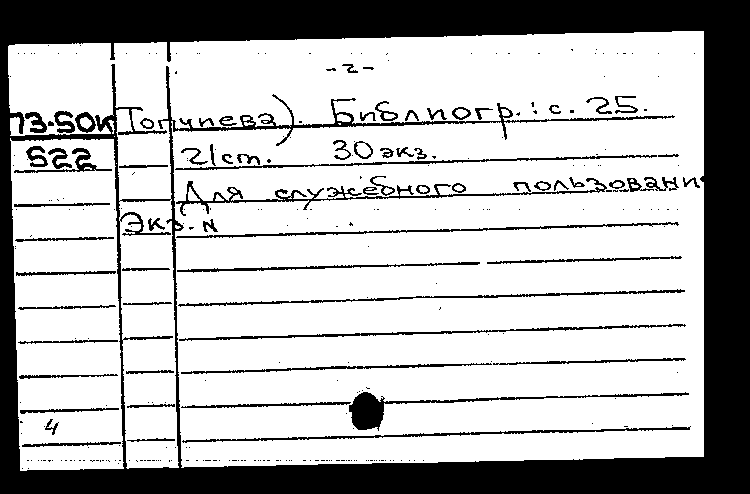 -2-
73-50к Топчиева). Библиогр.: с. 25.
522 2/ст. 30 экз.
Для служебного пользования
Экз. N
4